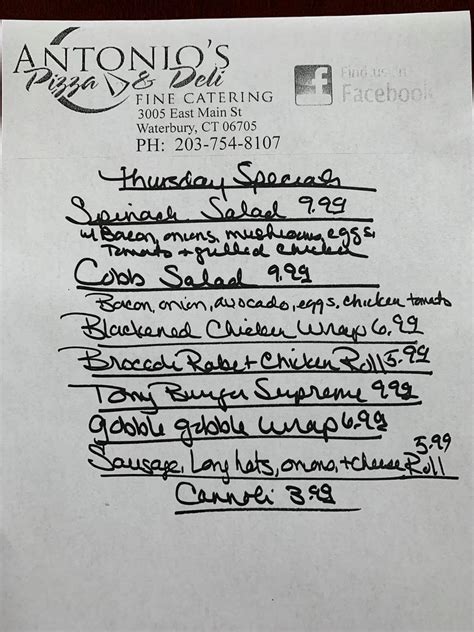 ANTONIO'S
Pizza & Deli
FINE CATERING
3005 East Main St
Waterbury, CT 06705
PH: 203-754-8107
f Find us on
Facebook
Thursday Specials
Spinach Salad 9.99
w/ Bacon, onions, mushrooms, eggs,
Tomato + grilled chicken
Cobb Salad 9.99
Bacon, onion, avocado, eggs, chicken tomato
Blackened Chicken Wrap 6.99
Broccoli Rabe + Chicken Roll 5.99
Tony Burger Supreme 9.99
gobble gobble wrap 6.99
Sausage, Long hots, onions, + cheese Roll 5.99
Cannoli 3.99